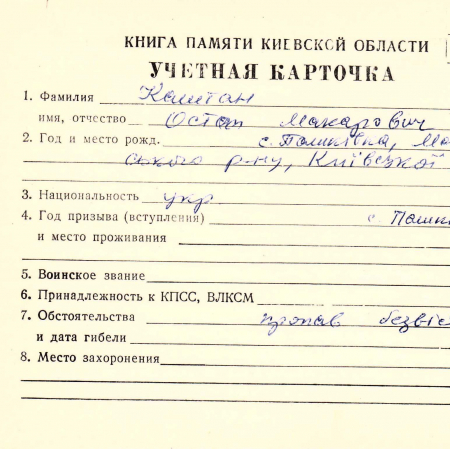 КНИГА ПАМЯТИ КИЕВСКОЙ ОБЛАСТИ
УЧЕТНАЯ КАРТОЧКА
1. Фамилия Каштан
имя, отчество Остап Макарович
2. Год и место рожд. с. Пашківка, Ма
ського р-ну, Київської
3. Национальность укр
4. Год призыва (вступления) с. Пашк
и место проживания
5. Воинское звание
6. Принадлежность к КПСС, ВЛКСМ
7. Обстоятельства пропав безвіс
и дата гибели
8. Место захоронения